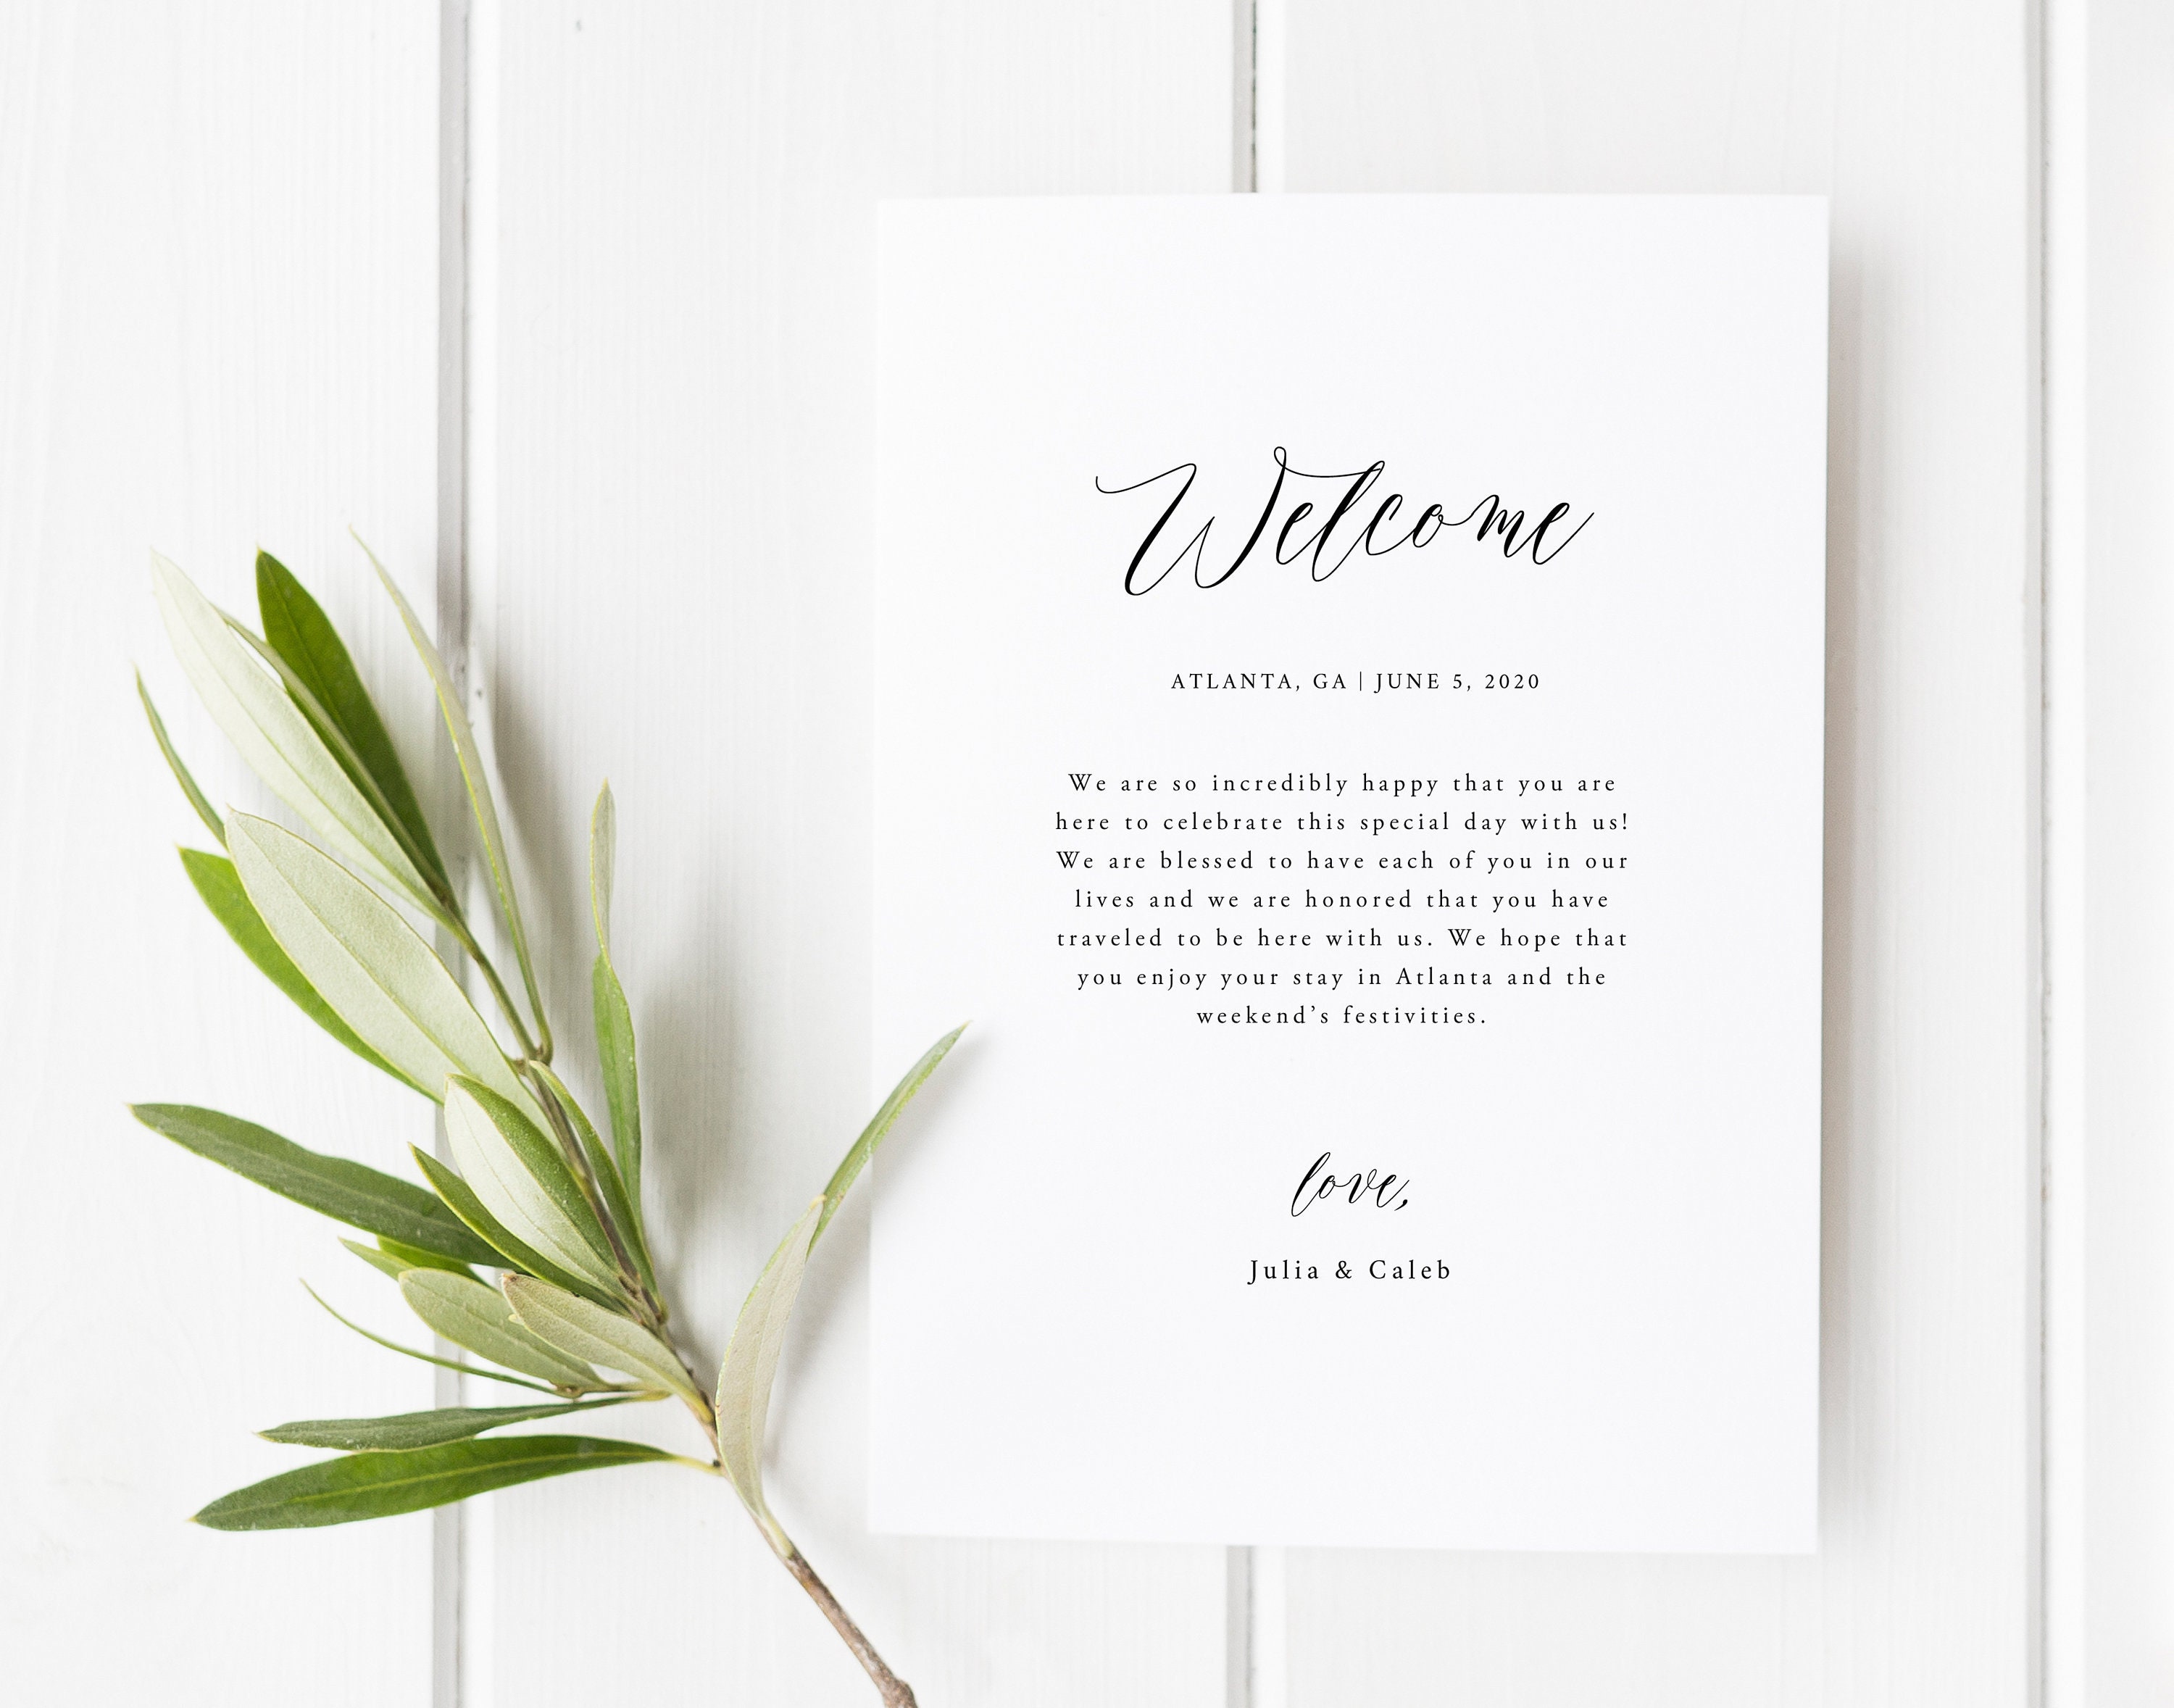 Welcome
ATLANTA, GA | JUNE 5, 2020
We are so incredibly happy that you are
here to celebrate this special day with us!
We are blessed to have each of you in our
lives and we are honored that you have
traveled to be here with us. We hope that
you enjoy your stay in Atlanta and the
weekend’s festivities.
love,
Julia & Caleb